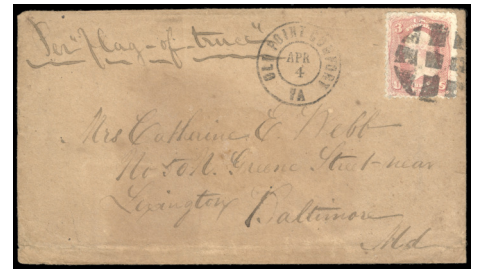 Per "flag-of-truce"
OLD POINT COMFORT
APR
4
VA
Mrs Catharine E. Webb
No 50 N. Greene Street-near
Lexington Baltimore
Md